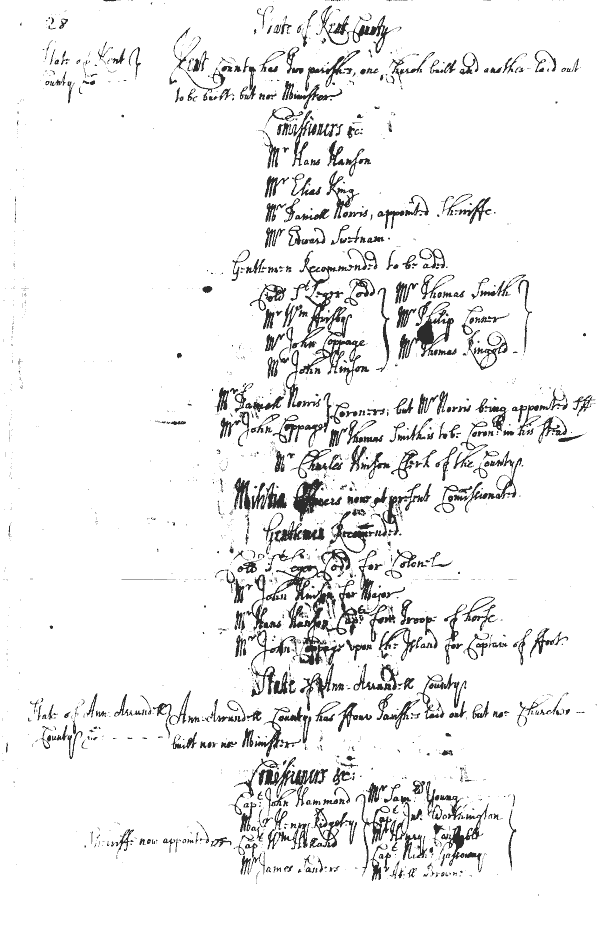 28
State of Kent County
State of Kent
County &c
Kent County has two parishes, one Church built and another laid out
to be built; but noe Minister.
Comissioners &c:
Mr Hans Hanson
Mr Elias King
Mr Daniell Norris, appointed Sheriffe.
Mr Edward Swetnam.
Gentlemen Recommended to be added.
Collo St Leger Codd
Mr Wm Frisby
Mr John Coppage
Mr John Hinson
Mr Thomas Smith
Mr Philip Conner
Mr Thomas Ringold
Mr Daniell Norris
Mr John Coppage
Coroners; but Mr Norris being appointed Sff
Mr Thomas Smith is to be Coronr in his stead
Mr Charles Hinson Clerk of the County.
Militia Officers now at present Comissionated.
Gentlemen Recomended.
Collo St Leger Codd for Colonel
Mr John Hinson for Major
Mr Hans Hanson Capt for a Troope of horse.
Mr John Coppage upon the Island for Captain of ffoot.
State of Ann Arrundell County.
State of Ann Arrundell
County &c
Ann Arrundell County has ffour Parishes laid out, but noe Churches
built nor noe Minister.
Comissioners &c:
Capt John Hammond
Majr Henry Ridgely
Sheriffe now appointed Capt Wm Holland
Mr James Sanders
Mr Saml Young
Capt Jno Worthington
Mr Henry Constable
Capt Nicho Gassaway
Mr Abell Browne